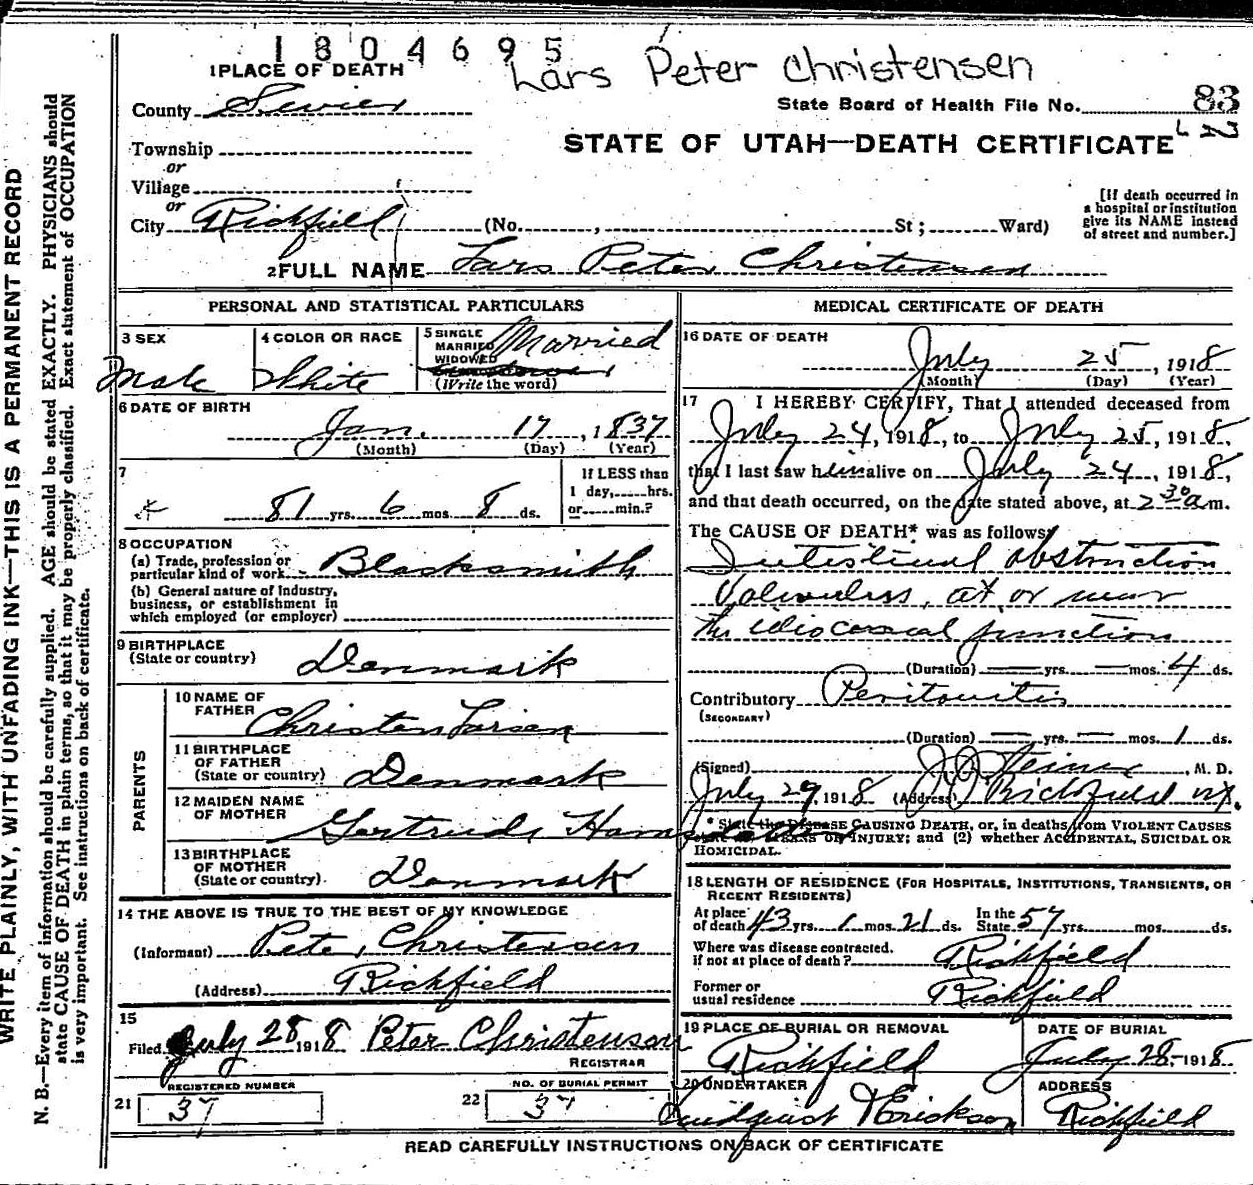 1804695
Lars Peter Christensen
1 PLACE OF DEATH
County Sevier
State Board of Health File No. 83
Township
or
Village
or
City Richfield (No. , St ; Ward)
STATE OF UTAH—DEATH CERTIFICATE
[If death occurred in
a hospital or institution
give its NAME instead
of street and number.]
2 FULL NAME Lars Peter Christensen
PERSONAL AND STATISTICAL PARTICULARS
3 SEX
Male
4 COLOR OR RACE
White
5 SINGLE
MARRIED
WIDOWED
Married
(Write the word)
6 DATE OF BIRTH
Jan. 17, 1837
(Month) (Day) (Year)
7
81 yrs. 6 mos. 8 ds.
If LESS than
1 day, hrs.
or min.?
8 OCCUPATION
(a) Trade, profession or
particular kind of work Blacksmith
(b) General nature of Industry,
business, or establishment in
which employed (or employer)
9 BIRTHPLACE
(State or country) Denmark
PARENTS
10 NAME OF
FATHER Christen Larsen
11 BIRTHPLACE
OF FATHER
(State or country) Denmark
12 MAIDEN NAME
OF MOTHER Gertrude
13 BIRTHPLACE
OF MOTHER
(State or country) Denmark
14 THE ABOVE IS TRUE TO THE BEST OF MY KNOWLEDGE
(Informant) Peter Christensen
(Address) Richfield
15
Filed July 28 1918 Peter Christenson
REGISTRAR
REGISTERED NUMBER
21 37
NO. OF BURIAL PERMIT
22 37
MEDICAL CERTIFICATE OF DEATH
16 DATE OF DEATH
July 25, 1918
(Month) (Day) (Year)
17 I HEREBY CERTIFY, That I attended deceased from
July 24, 1918, to July 25, 1918,
that I last saw him alive on July 24, 1918,
and that death occurred, on the date stated above, at 2 30 a m.
The CAUSE OF DEATH* was as follows:
Intestinal obstruction
Volvulus, at or near
the iliocoecal junction
(Duration) — yrs. — mos. 4 ds.
Contributory Peritonitis
(SECONDARY)
(Duration) — yrs. — mos. 1 ds.
(Signed) J. J. Steiner, M. D.
July 29, 1918 (Address) Richfield Ut.
* State the DISEASE CAUSING DEATH, or, in deaths from VIOLENT CAUSES
state (1) MEANS OF INJURY; and (2) whether ACCIDENTAL, SUICIDAL OR
HOMICIDAL.
18 LENGTH OF RESIDENCE (FOR HOSPITALS, INSTITUTIONS, TRANSIENTS, OR
RECENT RESIDENTS)
At place of death 43 yrs. 1 mos. 21 ds. In the State 57 yrs. mos. ds.
Where was disease contracted.
if not at place of death? Richfield
Former or
usual residence Richfield
19 PLACE OF BURIAL OR REMOVAL
Richfield
DATE OF BURIAL
July 28, 1918
20 UNDERTAKER
Lundquist & Erickson
ADDRESS
Richfield
READ CAREFULLY INSTRUCTIONS ON BACK OF CERTIFICATE
WRITE PLAINLY, WITH UNFADING INK—THIS IS A PERMANENT RECORD
N. B.—Every item of information should be carefully supplied. AGE should be stated EXACTLY. PHYSICIANS should
state CAUSE OF DEATH in plain terms, so that it may be properly classified. Exact statement of OCCUPATION
is very important. See instructions on back of certificate.